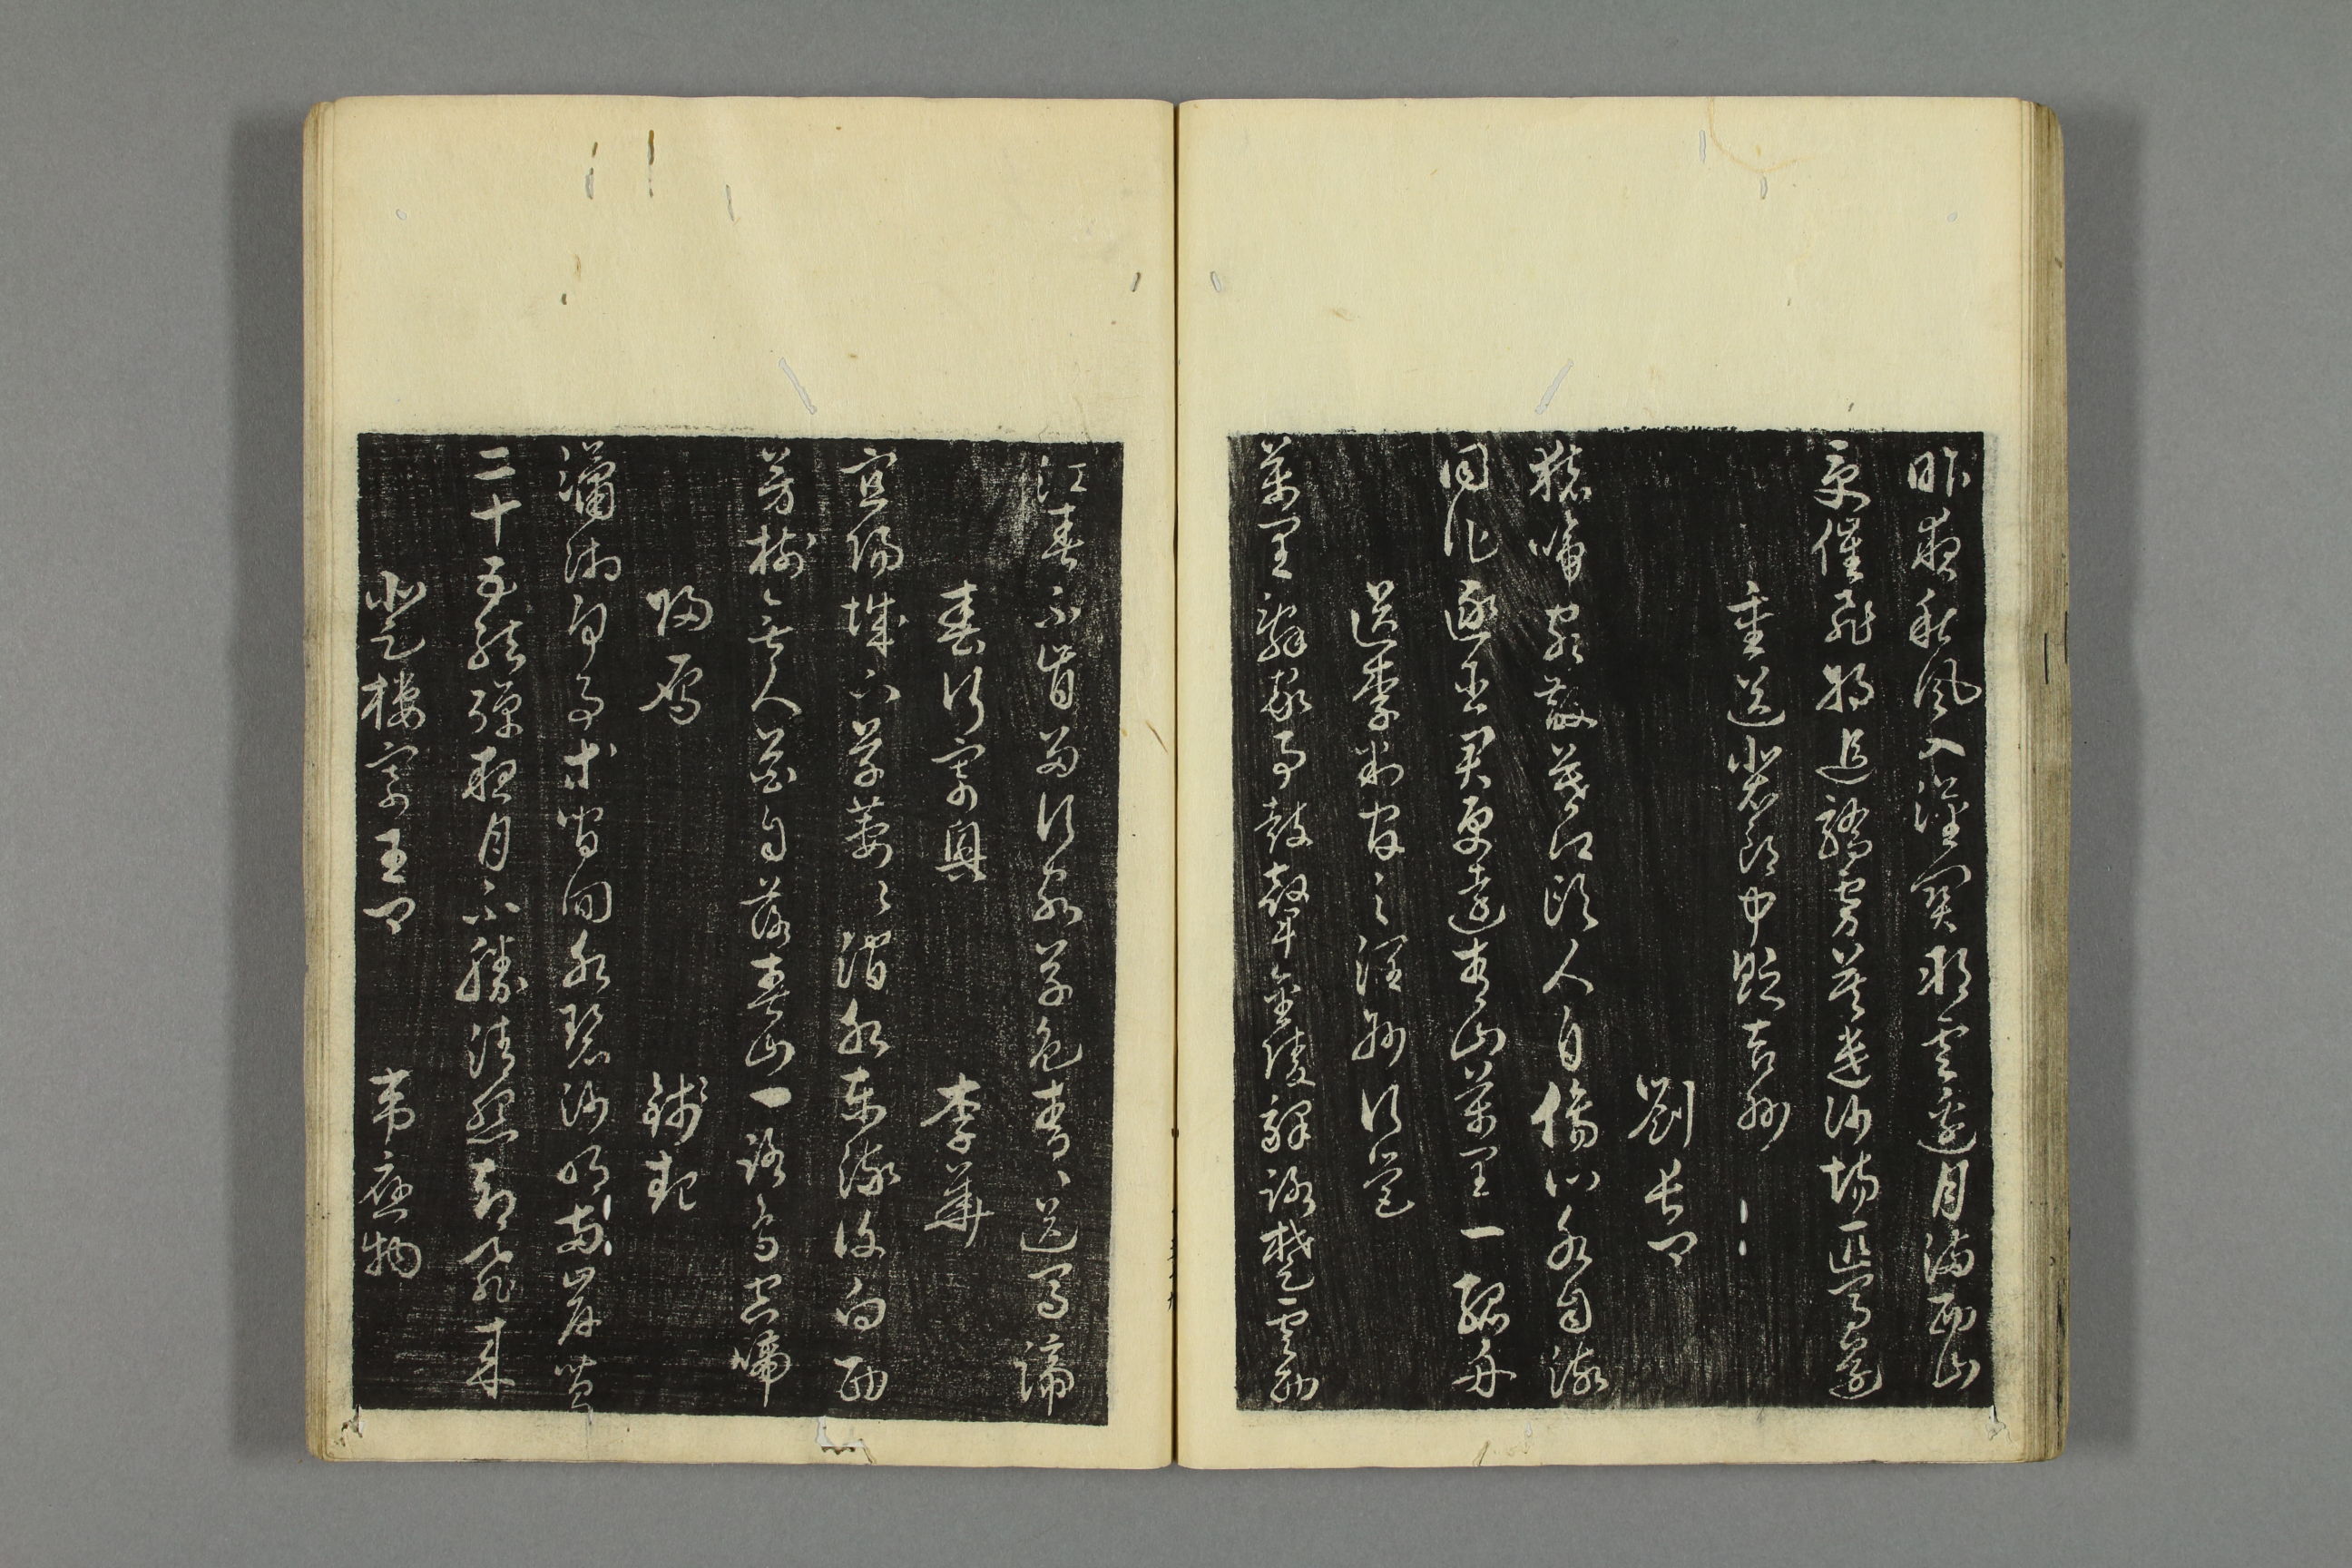 昨夜秋風入漢關朔雲邊月滿西山
更催飛將追驕虜莫遣沙場匹馬還
重送裴郎中貶吉州
劉長卿
猿啼客散暮江頭人自傷心水自流
同作逐臣君更遠青山萬里一孤舟
送李判官之潤州行營
萬里辭家事鼓鼙金陵驛路楚雲西
江春不肯留行客草色青〻送馬蹄
春行寄興
李華
宜陽城下草萋〻澗水東流復向西
芳樹無人花自落春山一路鳥空啼
歸雁
錢起
瀟湘何事等閒回水碧沙明兩岸苔
二十五絃彈夜月不勝清怨却飛來
登樓寄王卿
韋應物